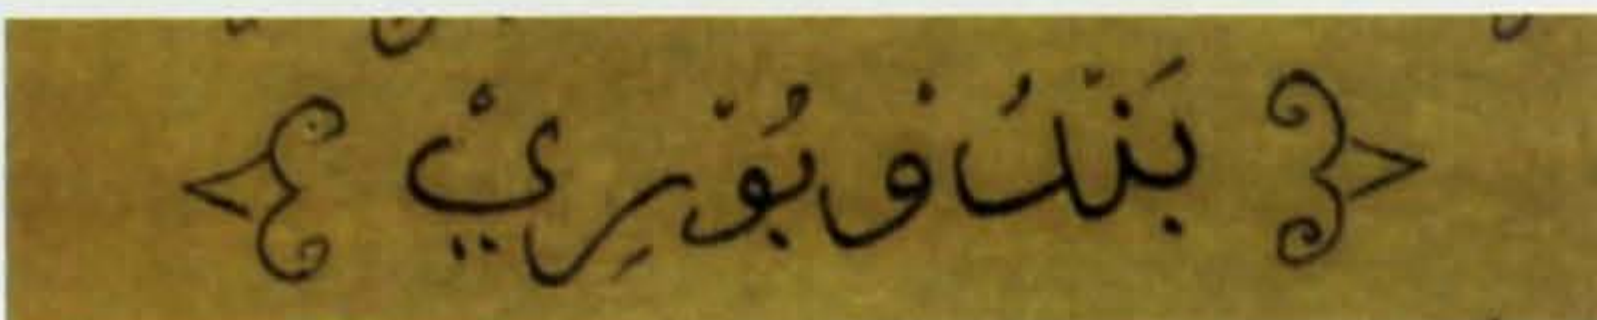 بَنْكُ وْ بُوْرِيْ